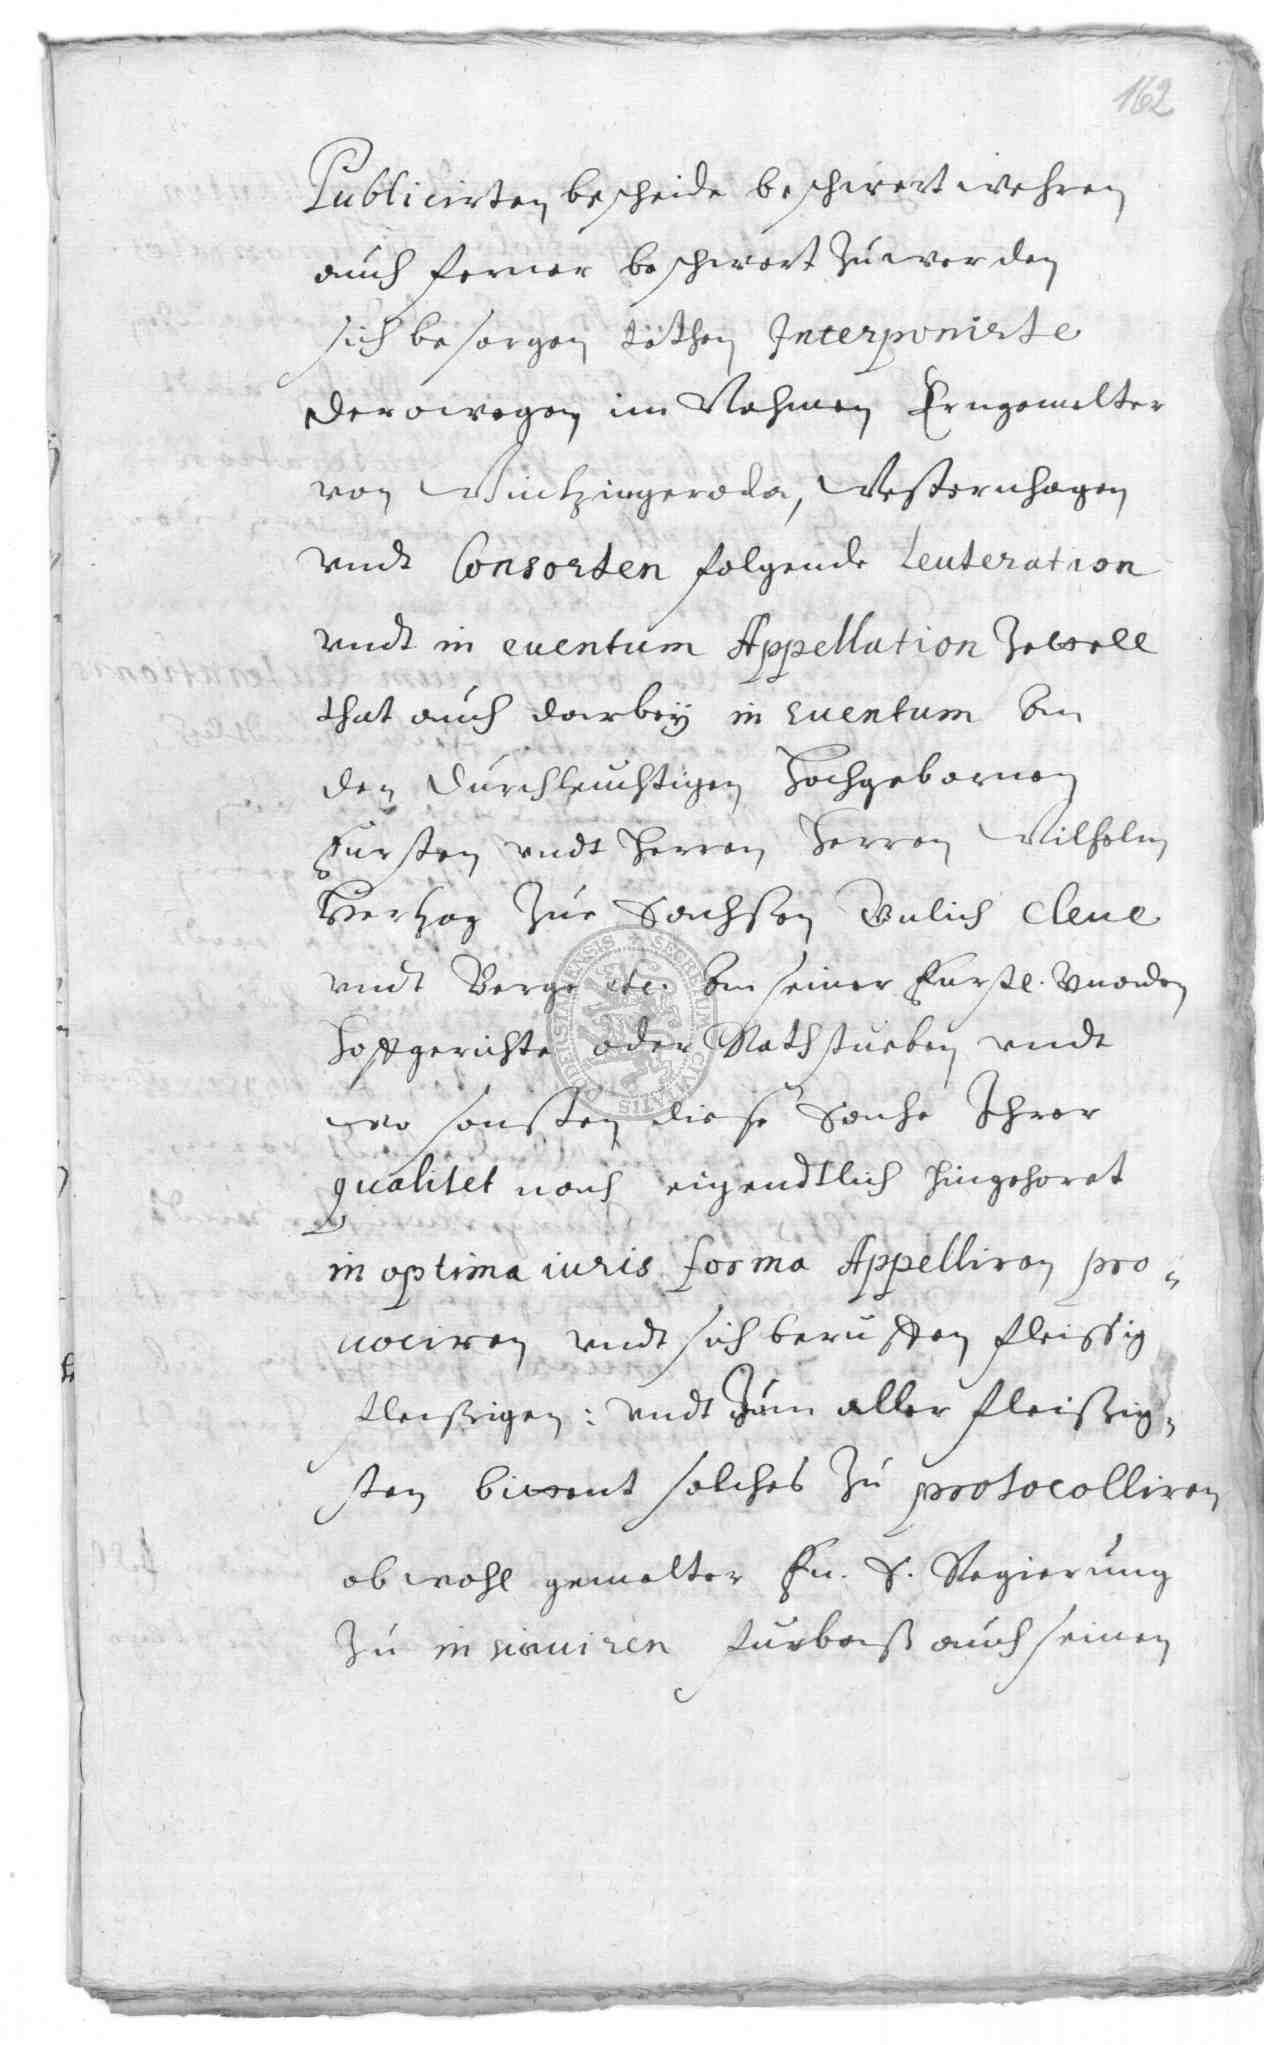 162
Publicirten bescheide beschwert wehren
auch ferner beschwert zuwerden
sich besorgen täthen Interponirte
derowegen im Nahmen Erngemelter
von Wintzingeroda, Westernhagen
undt Consorten folgende Leuteration
undt in euentum Appellation
that auch darbeÿ in euentum An
den Durchleuchtigen Hochgebornen
Fursten undt Herren Herren Wilhelm
Hertzog zue Sachssen Gulich Cleue
undt Berge etc. An seiner Furstl. Gnaden
Hoffgerichte oder Rathstueben undt
wo sonsten diese Sache Ihrer
qualitet nach eigendtlich hingehoret
in optima iuris forma Appelliren pro„
uociren undt sich beruffen fleissig
fleissigen: undt zum aller fleissig„
sten solches zu protocolliren
obwohl gemelter Fu. S. Regierung
zu insinuiren furbass auch seinen